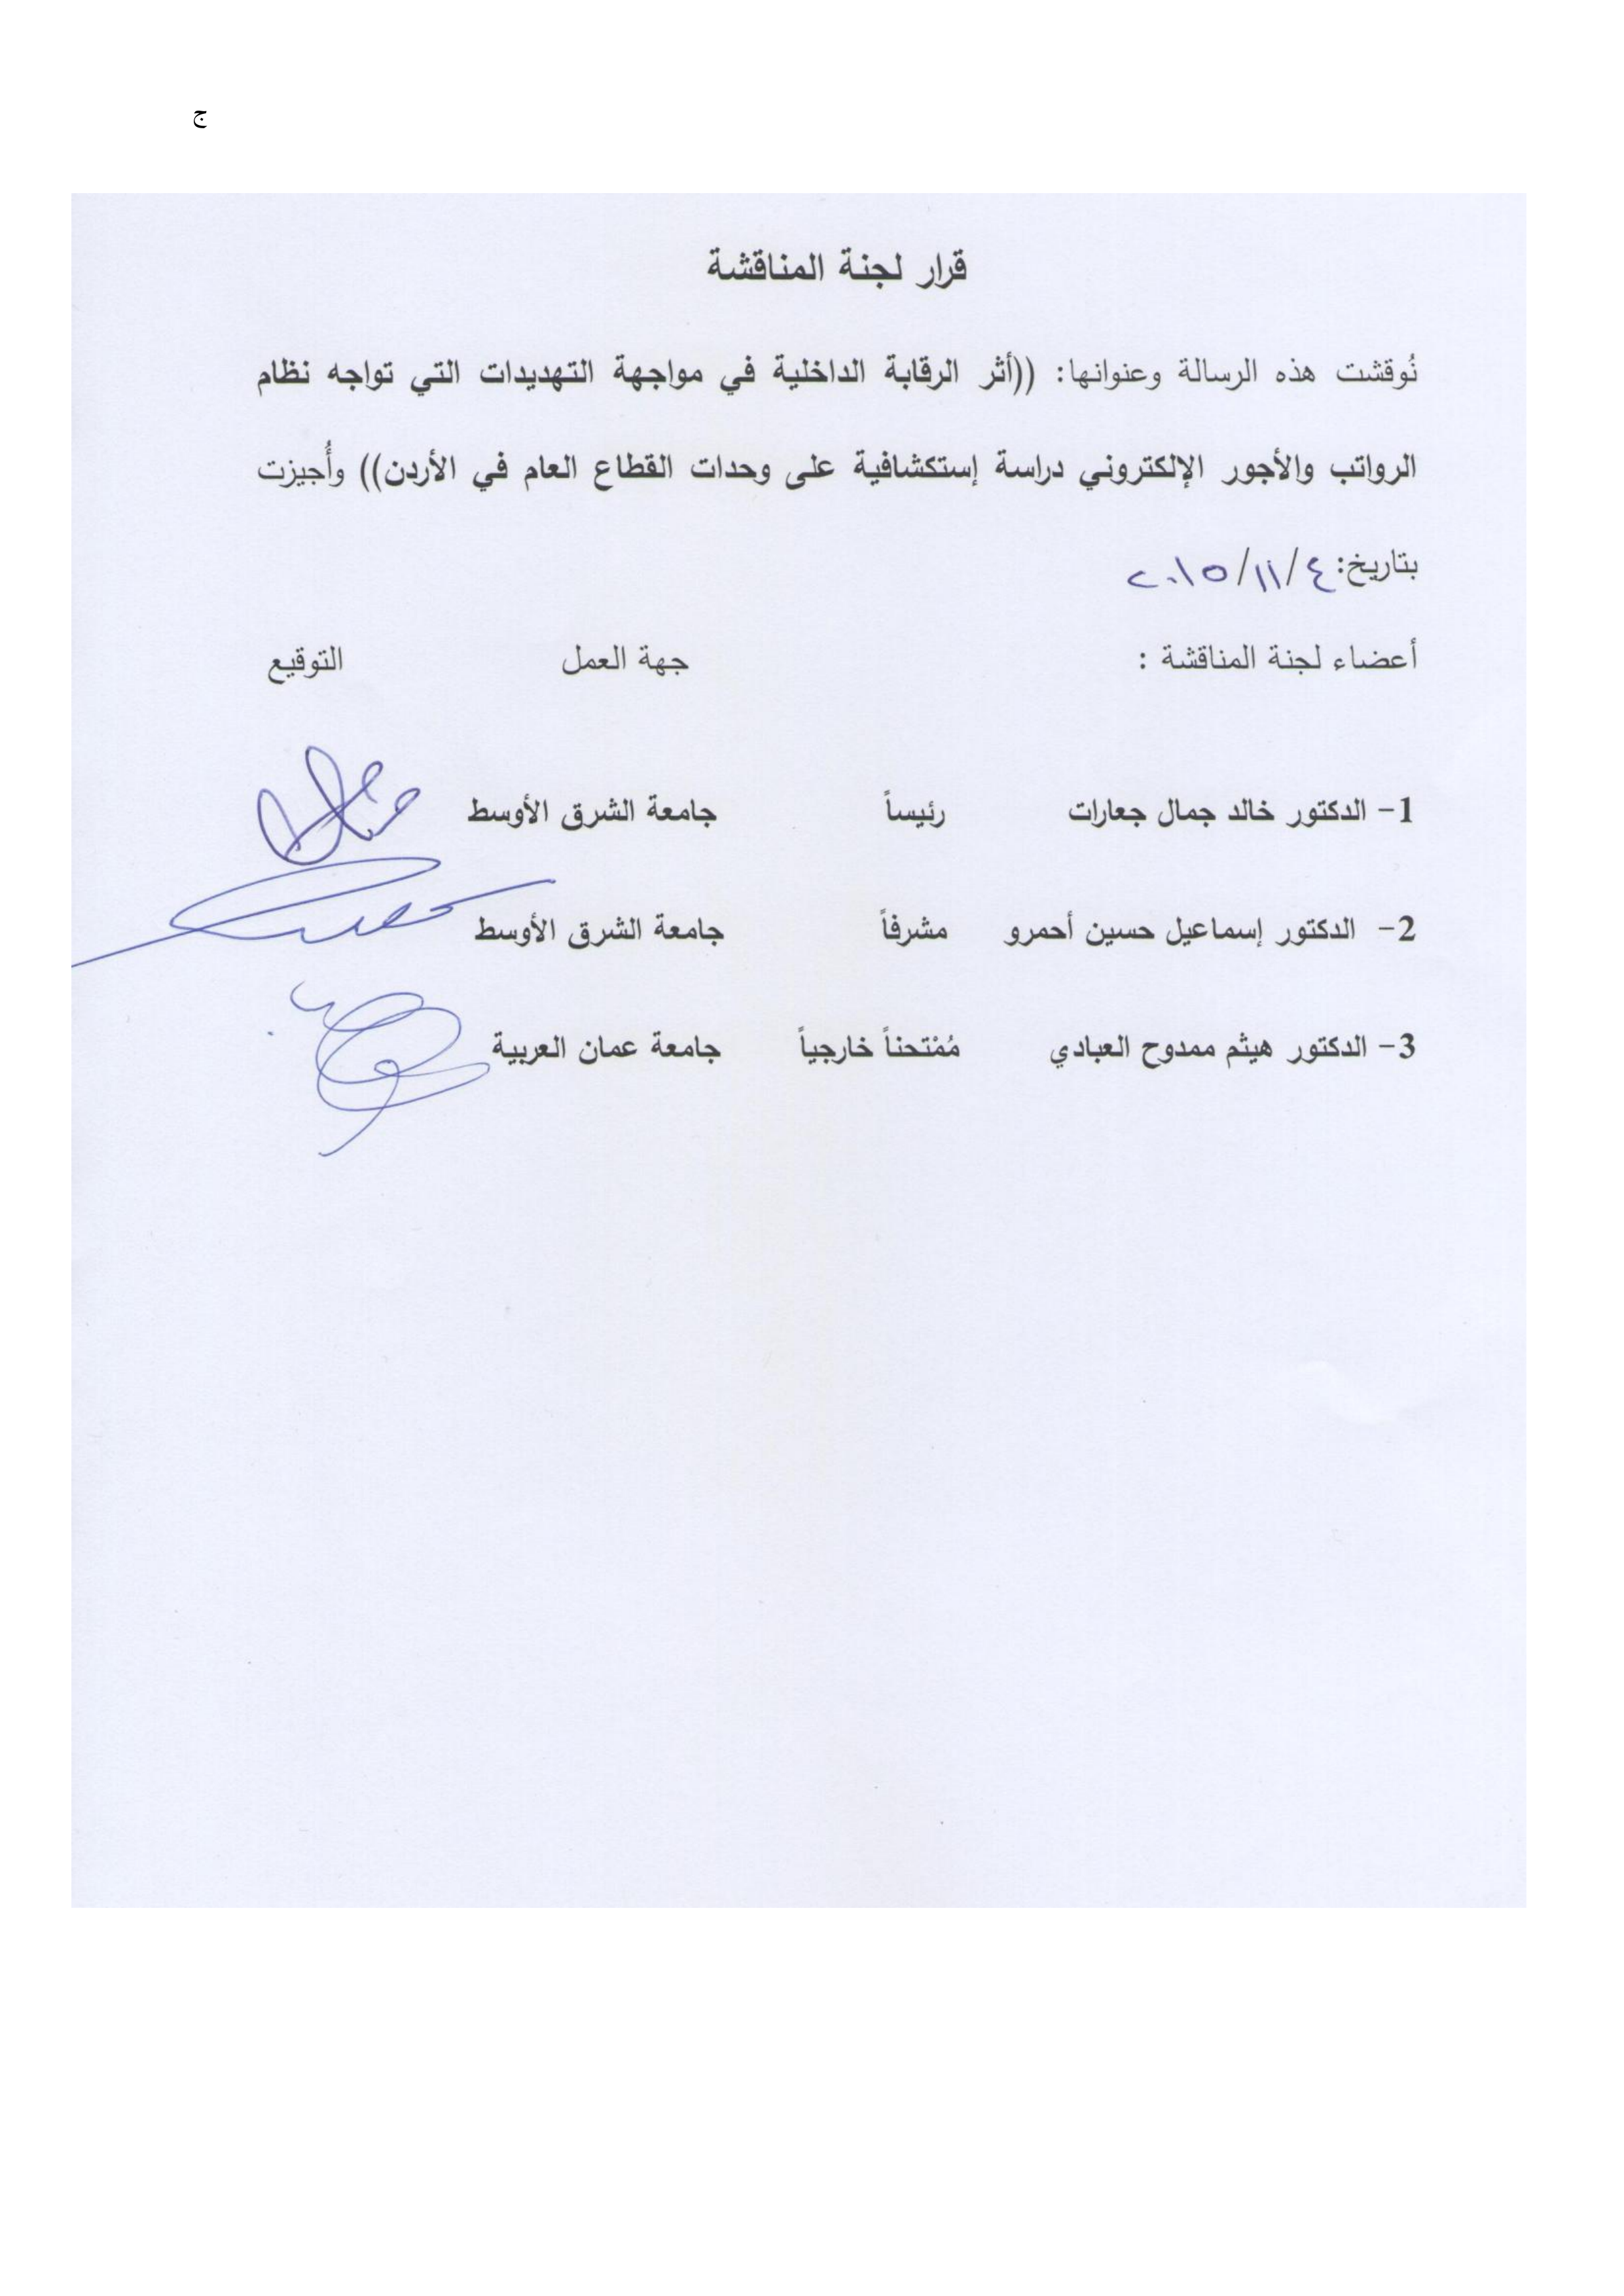 ج
قرار لجنة المناقشة
نُوقشت هذه الرسالة وعنوانها: ((أثر الرقابة الداخلية في مواجهة التهديدات التي تواجه نظام
الرواتب والأجور الإلكتروني دراسة إستكشافية على وحدات القطاع العام في الأردن)) وأُجيزت
بتاريخ: ٤/١١/٢٠١٥
أعضاء لجنة المناقشة : جهة العمل التوقيع
1- الدكتور خالد جمال جعارات رئيساً جامعة الشرق الأوسط
2- الدكتور إسماعيل حسين أحمرو مشرفاً جامعة الشرق الأوسط
3- الدكتور هيثم ممدوح العبادي مُمْتحناً خارجياً جامعة عمان العربية